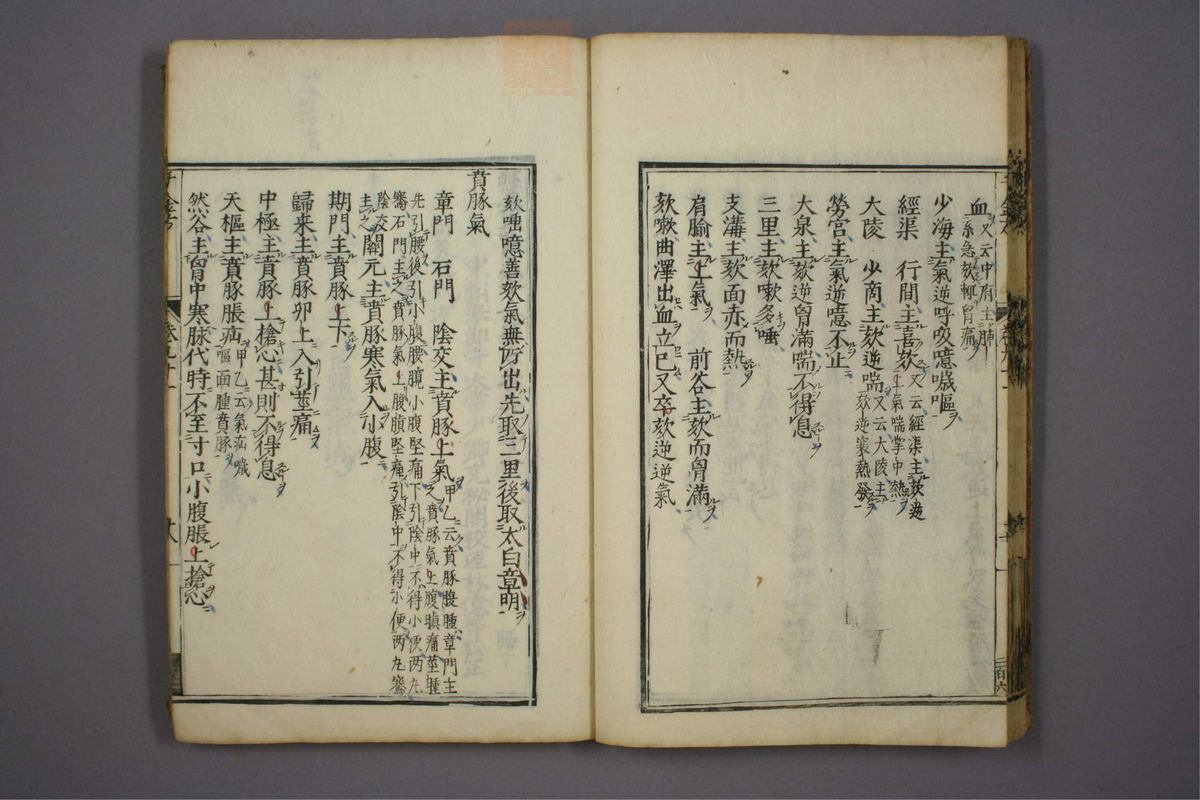 血又云中府主肺系急欬輒胷痛
少海主氣逆呼吸噫噦嘔
經渠　行間主喜欬又云經渠主欬逆上氣喘掌中熱
大陵　少商主欬逆喘又云大陵主欬逆寒熱發
勞宮主氣逆噫不止
大泉主欬逆胷滿喘不得息
三里主欬嗽多唾
支溝主欬面赤而熱
肩腧主上氣　前谷主欬而胷滿
欬嗽曲澤出血立已又卒欬逆逆氣
二百六
欬咄噫善欬氣無所出先取三里後取太白章明
賁豚氣
章門　石門　陰交主賁豚上氣甲乙云賁豚腹腫章門主之賁豚氣上腹䐜痛莖腫
先引腰後引小腹腰髖小腹堅痛下引陰中不得小便两丸
騫石門主之賁豚氣上腹䐜堅痛引陰中不得小便两丸騫
陰交主之關元主賁豚寒氣入小腹
期門主賁豚上下
歸来主賁豚卵上入引莖痛
中極主賁豚上搶心甚則不得息
天樞主賁豚脹疝甲乙云氣疝噦嘔面腫賁豚
然谷主胷中寒脉代時不至寸口小腹脹上搶心